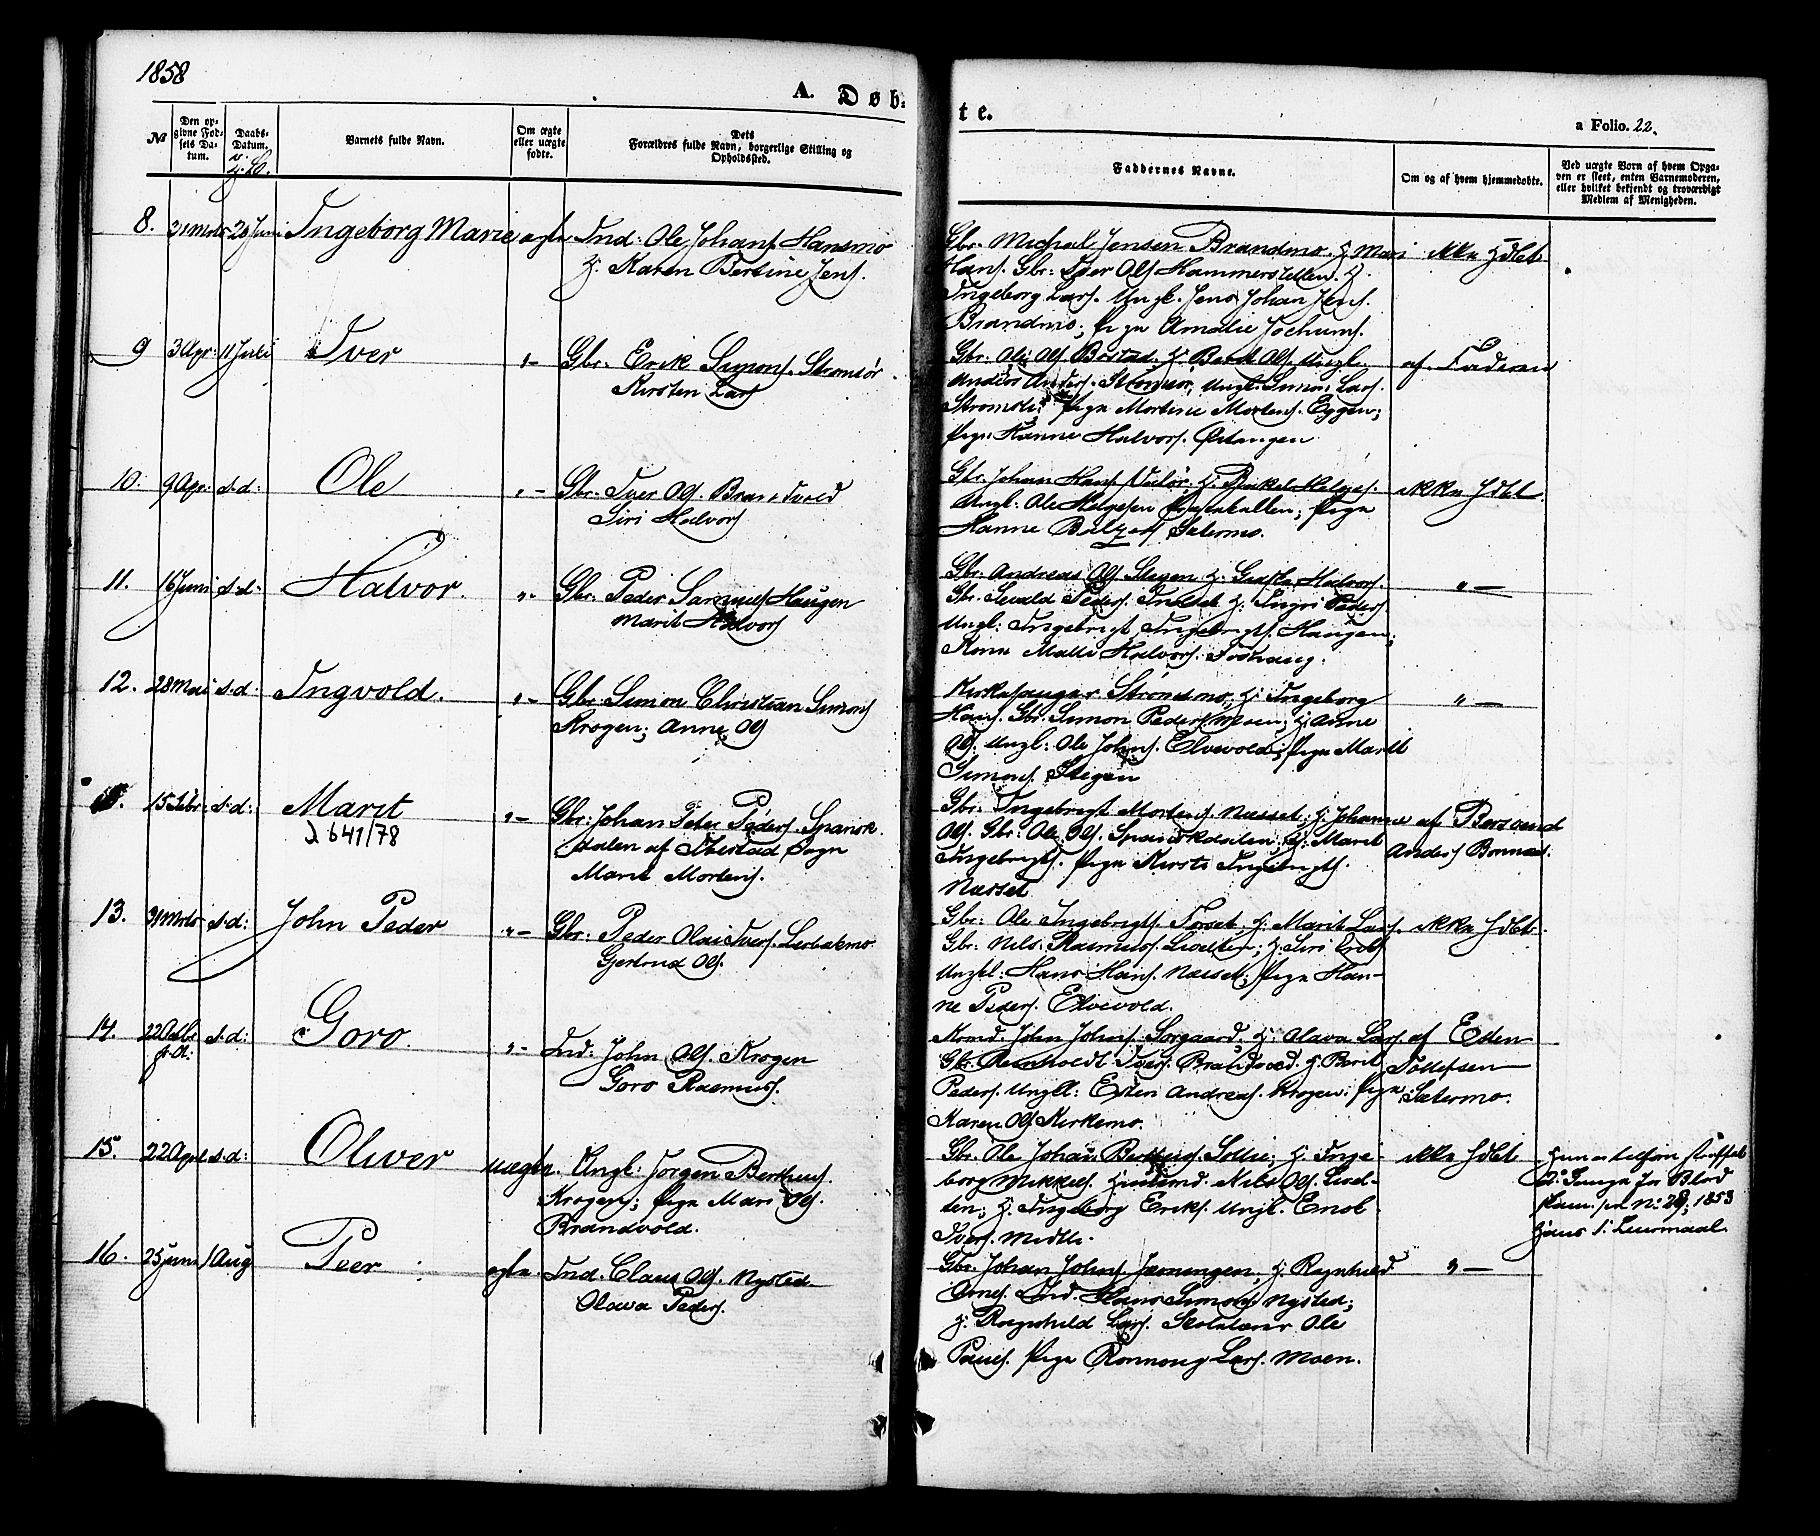 1858
A. Døb-
te.
a Folio. 22.
№
Den op-
givne Fød-
sels Da-
tum.
Daabs-
Datum.
Barnets fulde Navn.
Om ægte
eller uægte
fødte.
Dets
Forældres fulde Navn, borgerlige Stilling og
Opholdssted.
Faddernes Navne.
Om og af hvem hjemmedøbte.
Ved uægte Børn af hvem Opga-
ven er skeet, enten Barnemoderen,
eller hvilket bekjendt og troværdigt
Medlem af Menigheden.
8. 21 Marts 24 Juni Ingeborg Marie ægte Ind: Ole Johans. Hansmo
H: Karen Bertine Jens.
Gbr. Michael Jensen Brandmo. H: Mari
Hans. Gbr: Iver Ols. H.
Ingeborg Lars. Ungk. Jens Johan Jens.
Brandmo; Pige Amalie Jochums.
ikke Hdbt
9 3 Apr: 11 Juli Iver "- Gbr. Erik Simons. Strømsør
Kirsten Lars
Gbr: Ole Ols. Bostad. H: Berit Ols. Ungk.
Anders Anders. Strømsør, Ungk. Simon Lars.
Pige Mortine Mortens. Eggen;
Pige: Hanne Halvors. Østangen
af Faderen
10. 9 Apr: s.d: Ole "- Gbr. Iver Ols. Brandvold
Siri Halvors
Gbr. Johan Hans H: Helges.
Ungk: Ole Helgesen Pige
Hanne Balzers Sætermo.
ikke Hdbt
11. 16 Juni s.d: Halvor. "- Gbr: Peder Samuels. Haugen
Marit Halvors
Gbr. Andreas Ols. Stegen H: Halvors.
Gbr. Sivald Peders. H: Ingri Peders
Ungk: Ingebrigt Ingebrigts. Haugen;
Kone Malli Halvors. Foshaug.
"-
12. 28 Mai s.d: Ingvold. "- Gbr Simon Christian Simons
Krogen; Anne Ols
Kirkesanger Strømsmo; H: Ingeborg
Hans. Gbr. Simon Peders. Moen; H: Anne
Ols. Ungk: Ole Johns. Elvevold; Pige Marit
Simons. Stegen
"-
15 Febr: s.d: Marit "- Gbr: Johan Peter Peders. Spansk-
D 641/78
dalen af Ibestad Sogn
Marie Mortens.
Gbr: Ingebrigt Mortens. Næsset; H: Johanne
Ols. Gbr: Ole Ols. Spanskdalen; H: Marit
Ingebrigts. Pige Kirsti Ingebrigts.
Næsset
af Bersvend
Anders Bonnes.
13. 31 Marts s.d: John Peder "- Gbr: Peder Olai Ivers.
Gjertrud Ols.
Gbr: Ole Ingebrigts. Forset. H: Marit Lars.
Gbr: Nils Rasmuss. H: Siri Eriks
Ungkl: Hans Hans. Næsset; Pige Han-
ne Peders. Elvevold.
ikke Hdbt.
14. 22 Octbr s.d: Goro. "- Ind: John Ols. Krogen
f. A:
Goro Rasmus.
John Johns. Sørgaard; H: Olava Lars.
Gbr: Reinholdt Ivers. Brandvold. H: Berit
Peders. Ungkl: Esten Andreas. Krogen; Pige
Karen Ols Kirkemo.
af Esten
Tollefsen
Sætermo.
15. 22 April s.d: Oliver uægte. Ungk: Jørgen Berthus.
Krogen; Pige Mari Ols.
Brandvold.
Gbr. Ole Johan Berthus. Sollie; H: Inge-
borg Mikkels. Nils Ols. Lied-
ten; H: Ingeborg Eriks. Ungk. Enok
Ivers. Melli.
ikke Hdbt
2. Gange for Blod
skam. 1853
Hans 1. Leiermaal.
16. 25 Juni 1 Aug Peer ægte Ind. Claus Ols. Nysted.
Olava Peders.
Gbr. Johan Johns. H: Ragnhild
Arnes. Ind. Hans Simons. Nysted;
H: Ragnhild Lars. Skolelærer Ole
Paus. Pige Rønnoug Lars. Moen.
"-